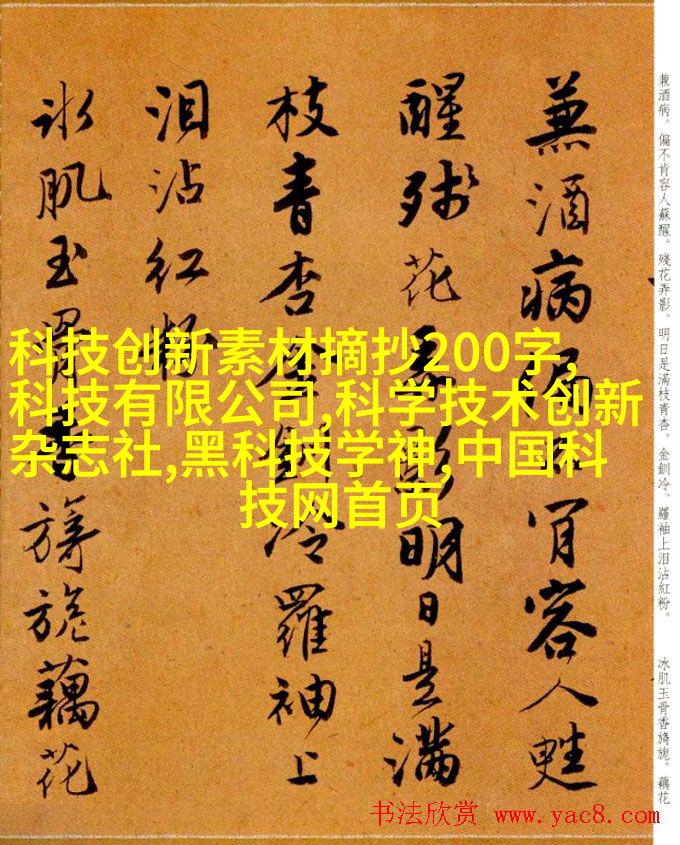 兼酒病偏不肯容人甦
醒殘花弄影明日是滿
枝青杏金釧冷羅袖上
泪沾紅粉
冰肌玉骨香旖旎藕花
兼酒病。偏不肯容人蘇醒。殘花弄影。明日是滿枝青杏。金釧冷。羅袖上泪沾紅粉。
冰肌玉骨香旖旎。藕花
科技创新素材摘抄200字,
科技有限公司,科学技术创新
杂志社,黑科技学神,中国科
技网首页
书法欣赏 www.yac8.com